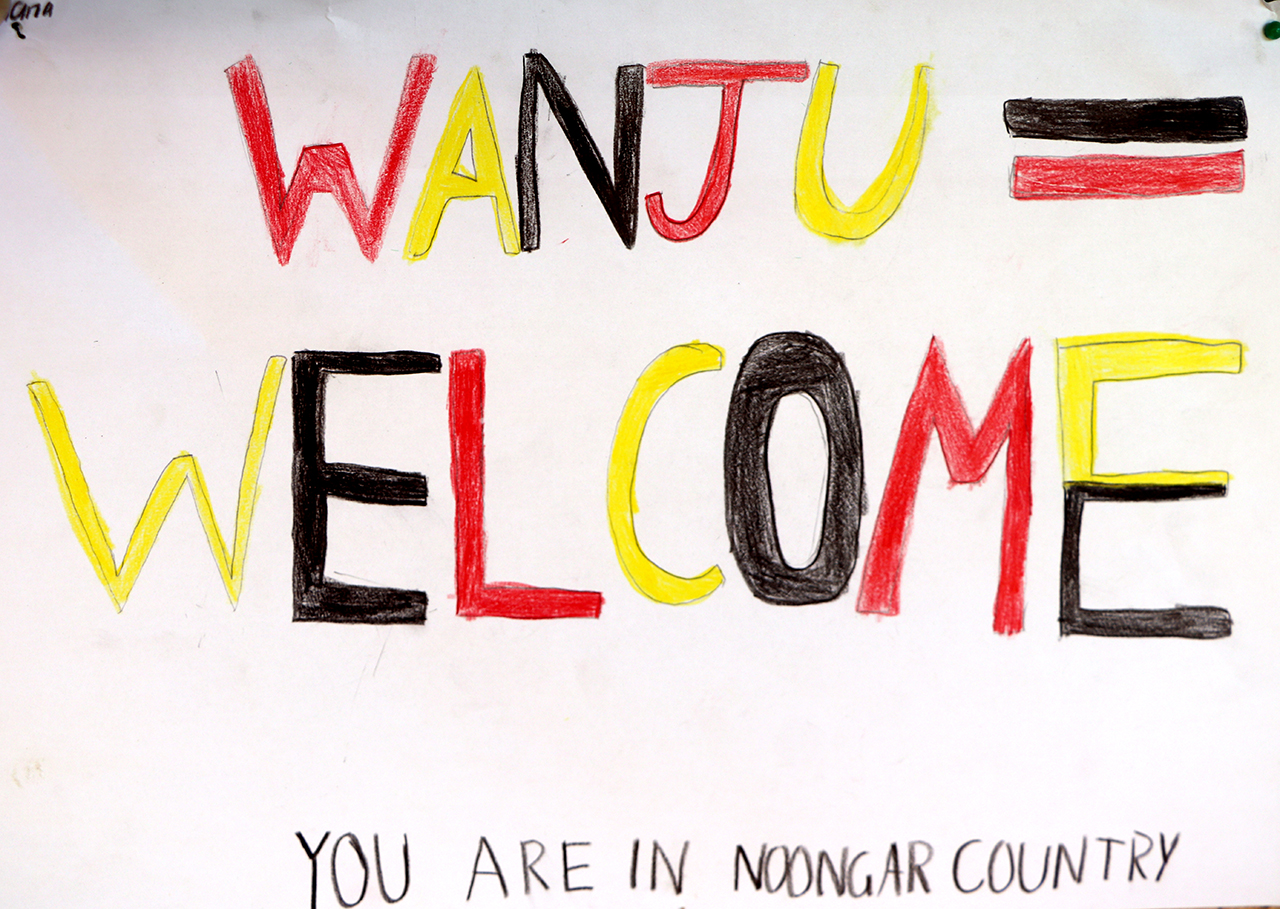 WANJU =
WELCOME
YOU ARE IN NOONGAR COUNTRY